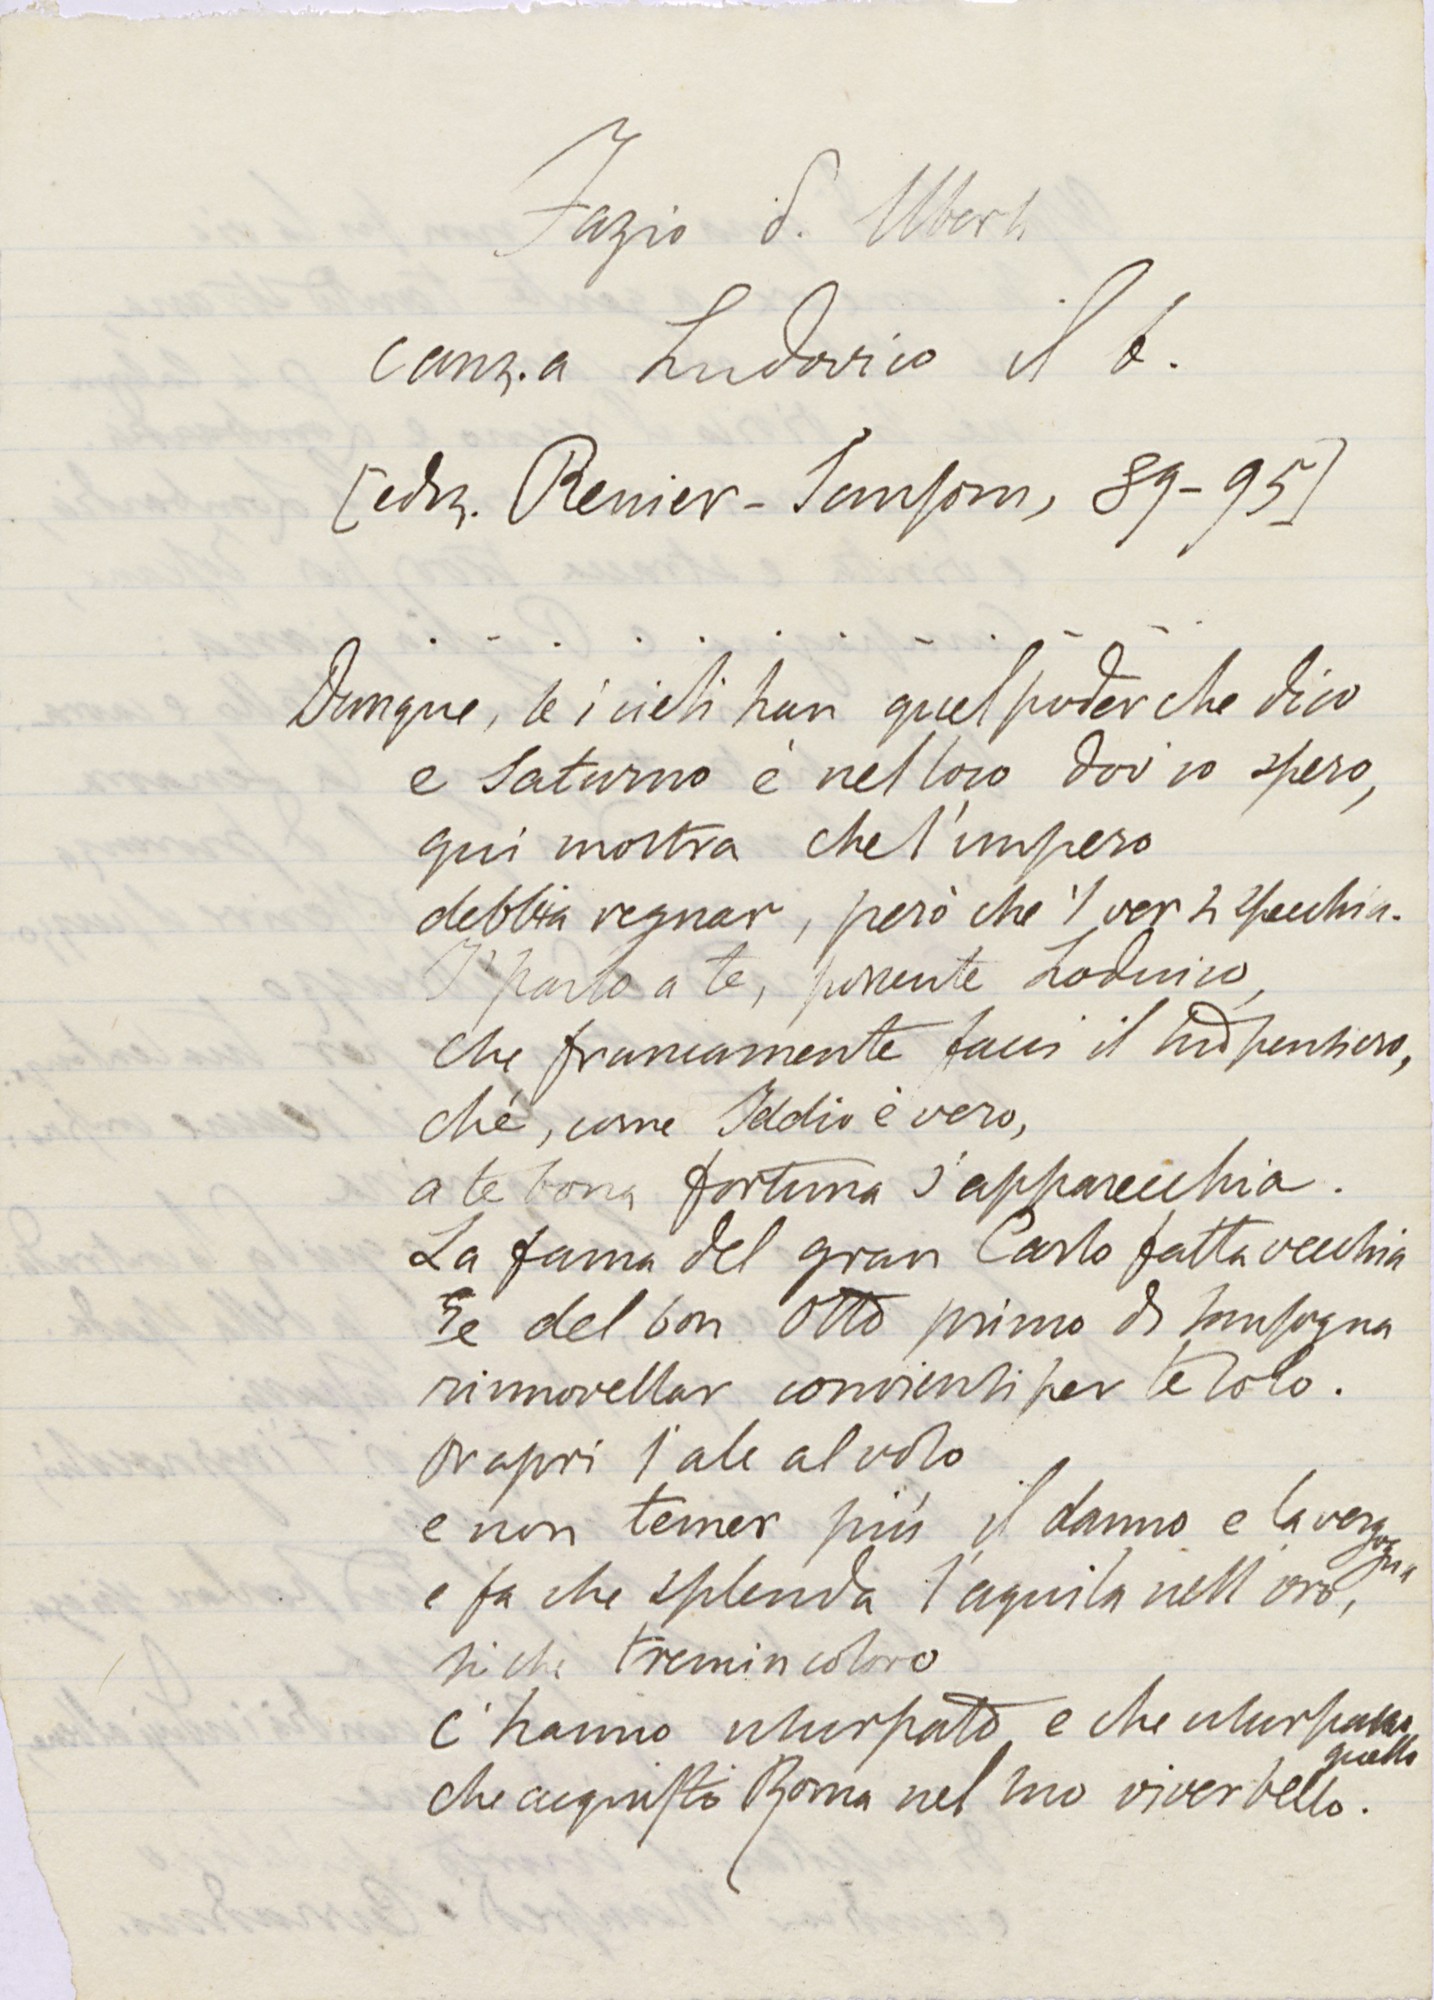 Fazio d. Uberti
canz. a Ludovico il b.
[ediz. Renier - Sansoni, 89-95]
Dunque, se i cieli han quel poder che dico
e Saturno è nel loco dov'io spero,
qui mostra che l'impero
debbia regnar, però che 'l ver si specchia.
I' parlo a te, possente Lodvico,
che francamente facci il tuo pensiero,
ché, come Iddio è vero,
a te bona fortuna s'apparecchia.
La fama del gran Carlo fatta vecchia
e del bon Otto primo di Sansogna
rinnovellar conviensi per te solo.
Or apri l'ale al volo
e non temer più il danno e la vergogna
e fa che splenda l'aquila nell'oro,
sì che tremin coloro
c'hanno usurpato e che usurpano quello
che acquistò Roma nel suo viver bello.